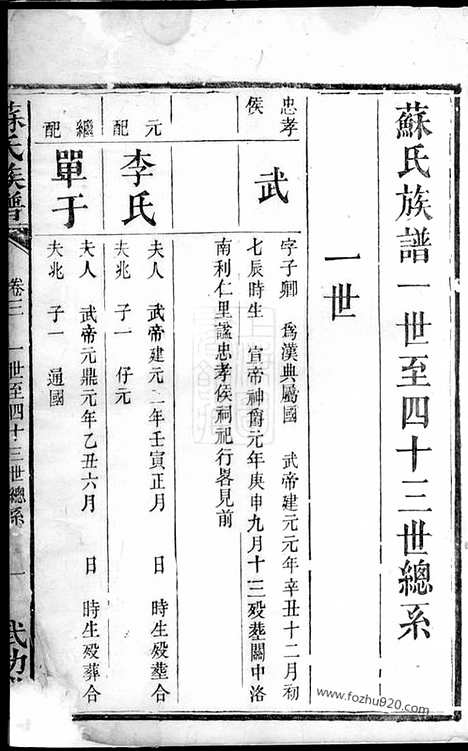 蘇氏族譜一世至四十三世總系
一世
忠孝侯
武
字子卿 爲漢典屬國 武帝建元元年辛丑十二月初
七辰時生 宣帝神爵元年庚申九月十三歿塟關中洛
南利仁里諡忠孝侯祠祀行畧見前
元配
李氏
夫人 武帝建元二年壬寅正月 日 時生歿塟合
夫兆 子一 仔元
繼配
單于
夫人 武帝元鼎元年乙丑六月 日 時生歿葬合
夫兆 子一 通國
蘇氏族譜
卷三 一世至四十三世總系
一
武功
www.fozhu920.com